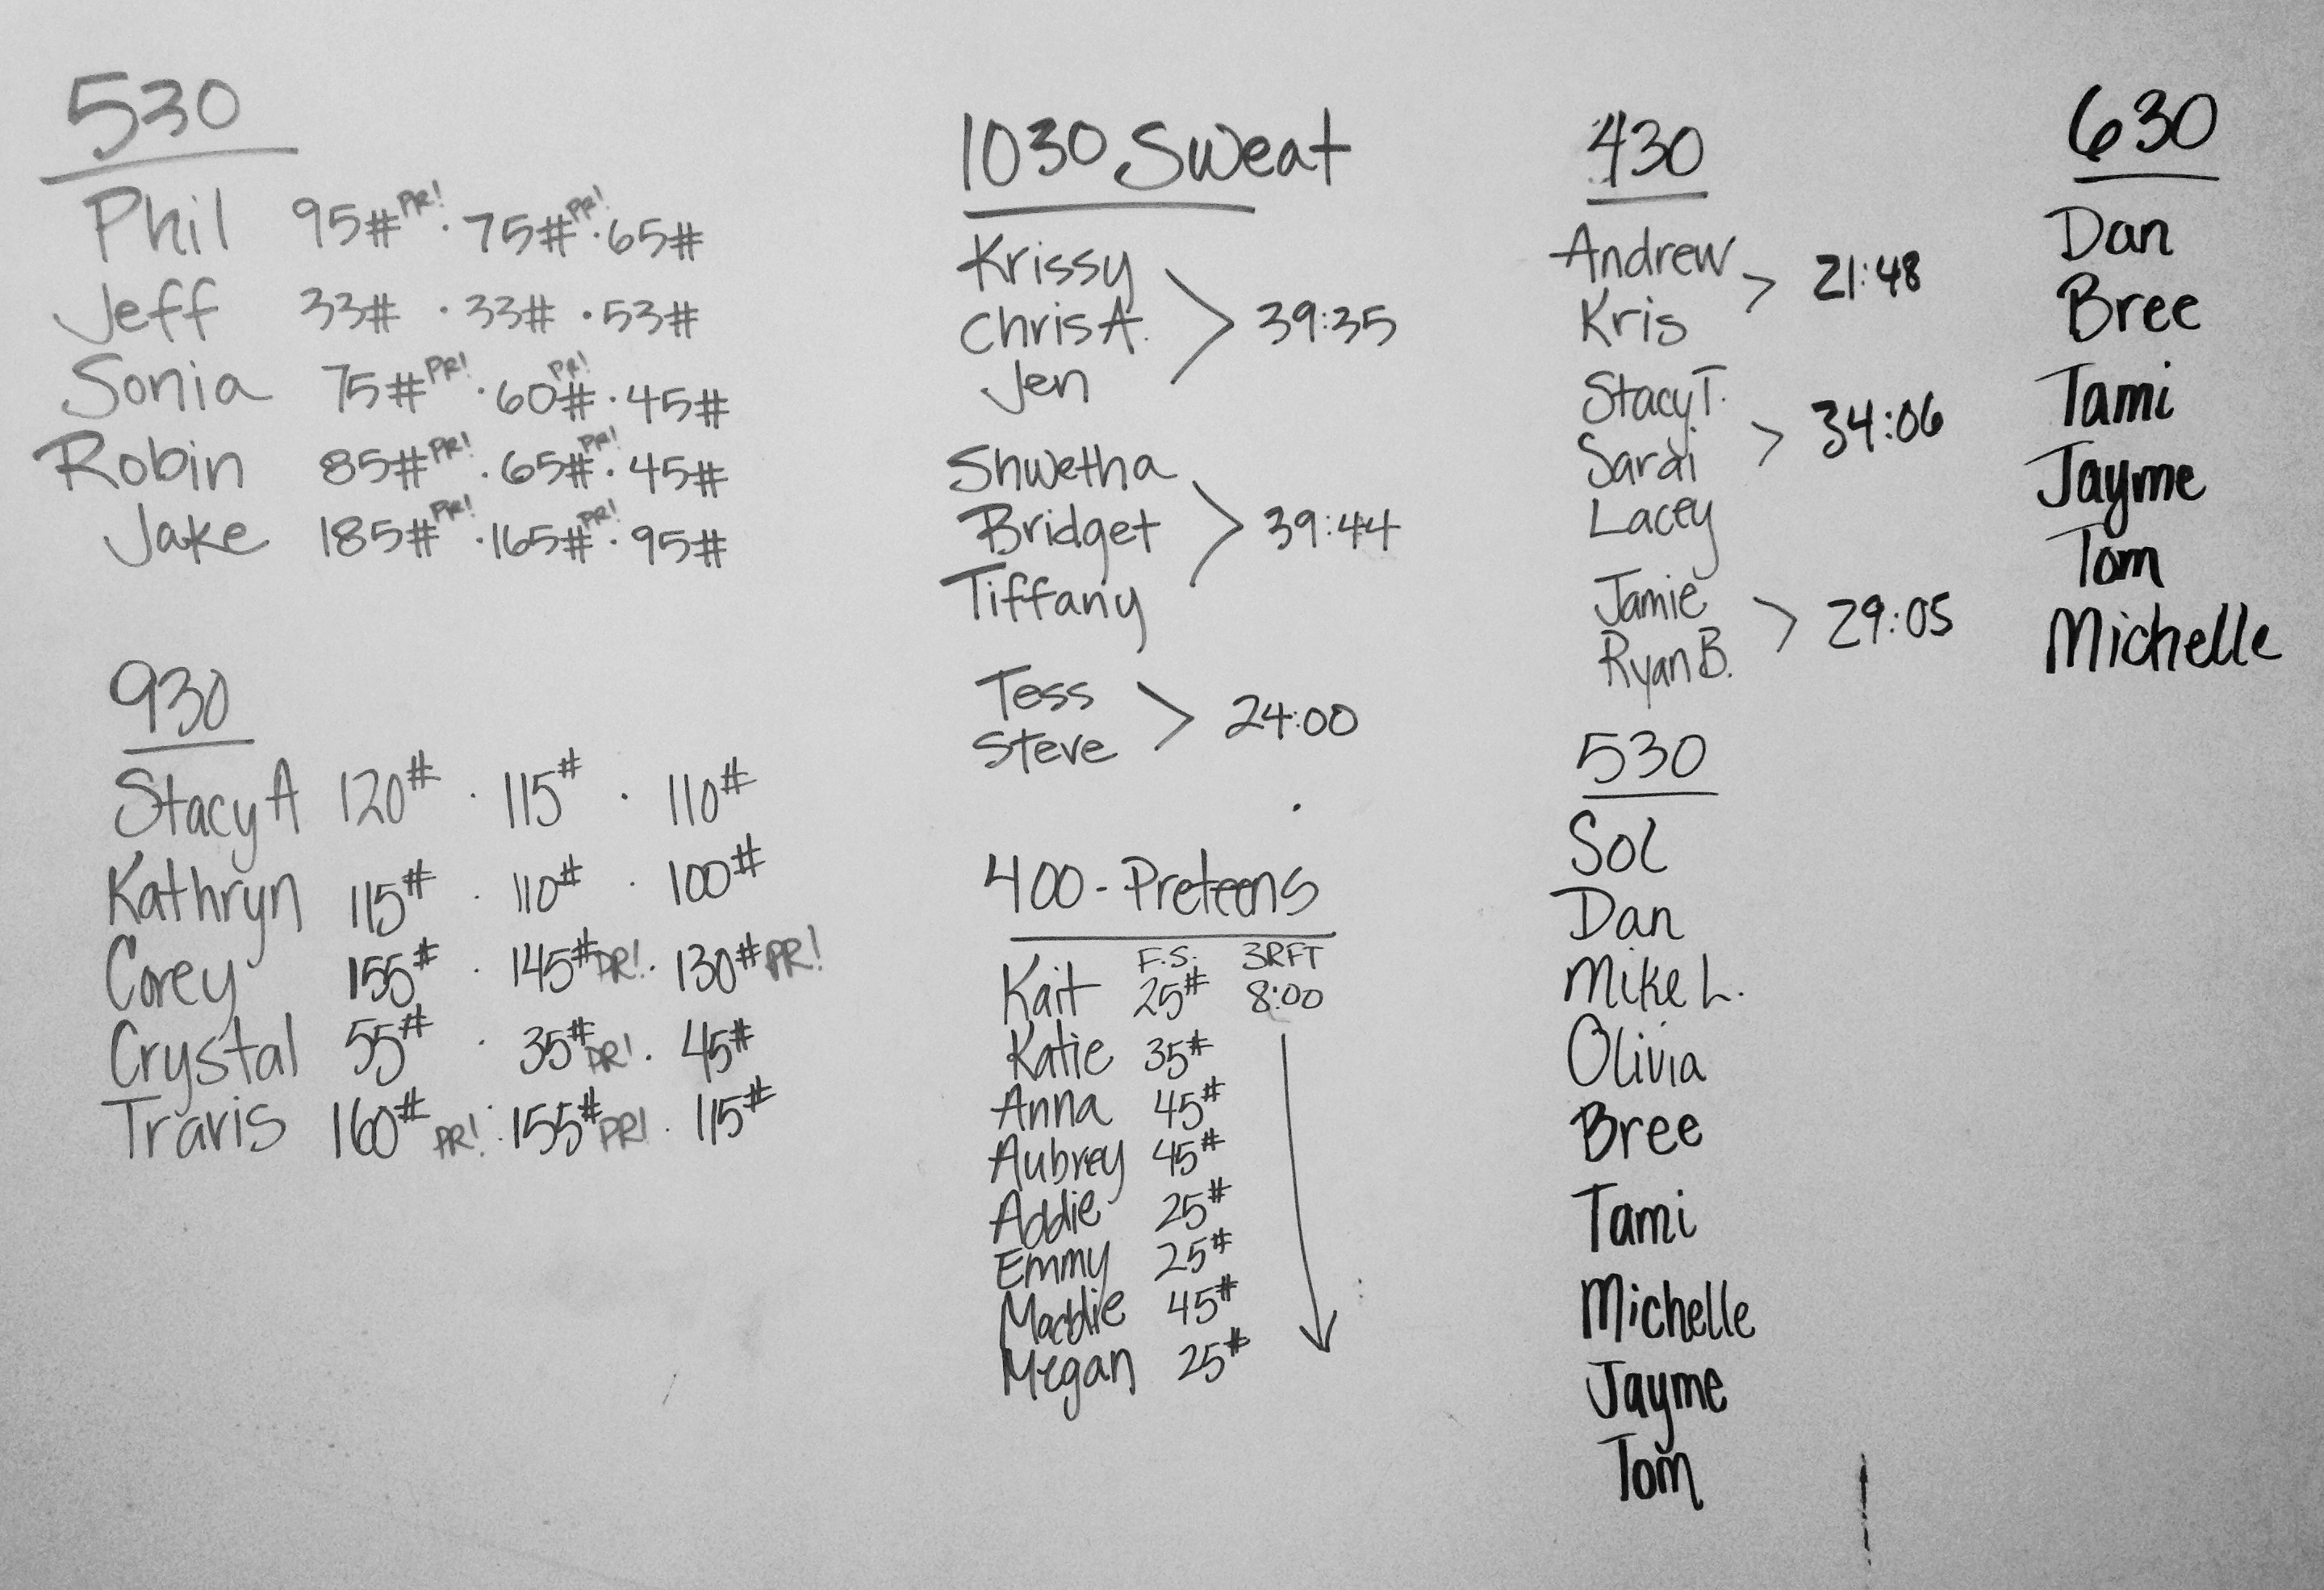 530
Phil 95# PR! · 75# PR! · 65#
Jeff 33# · 33# · 53#
Sonia 75# PR! · 60# PR! · 45#
Robin 85# PR! · 65# PR! · 45#
Jake 185# PR! · 165# PR! · 95#
930
Stacy A 120# · 115# · 110#
Kathryn 115# · 110# · 100#
Corey 155# · 145# PR! · 130# PR!
Crystal 55# · 35# PR! · 45#
Travis 160# PR! · 155# PR! · 115#
1030 Sweat
Krissy
Chris A. > 39:35
Jen
Shwetha
Bridget > 39:44
Tiffany
Tess
Steve > 24:00
400 - Preteens
F.S. 3RFT
Kait 25# 8:00
Katie 35#
Anna 45#
Aubrey 45#
Addie 25#
Emmy 25#
Maddie 45#
Megan 25#
430
Andrew > 21:48
Kris
Stacy T. > 34:06
Sardi
Lacey
Jamie > 29:05
Ryan B.
530
Sol
Dan
Mike L.
Olivia
Bree
Tami
Michelle
Jayme
Tom
630
Dan
Bree
Tami
Jayme
Tom
Michelle